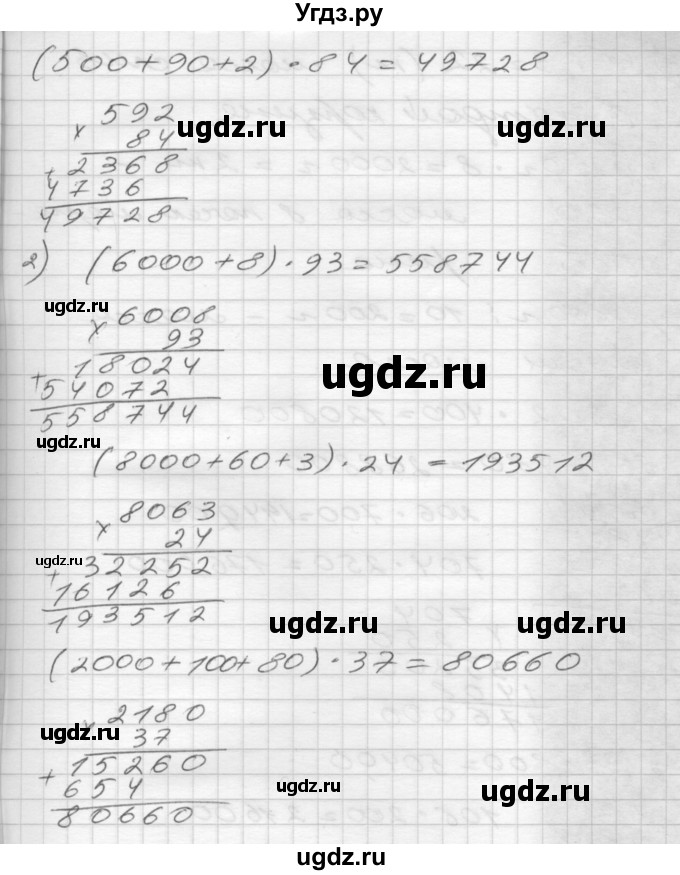 Угдз.ру
(500+90+2)·84=49728
592
× 84
+ 2368
4736
49728
2) (6000+8)·93=558744
× 6008
93
+ 18024
54072
558744
(8000+60+3)·24=193512
× 8063
24
+ 32252
16126
193512
(2000+100+80)·37=80660
× 2180
37
+ 15260
654
80660
ugdz.ru
ugdz.ru
ugdz.ru
ugdz.ru
ugdz.ru
ugdz.ru
ugdz.ru
ugdz.ru
ugdz.ru
ugdz.ru
ugdz.ru
ugdz.ru
ugdz.ru
ugdz.ru